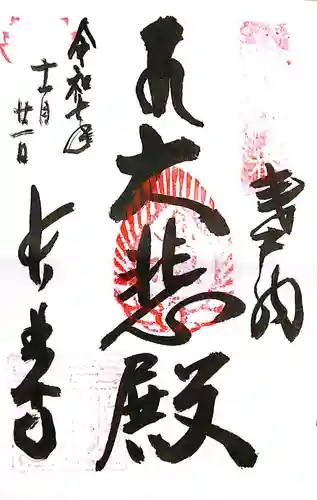 奉拝
大悲殿
令和七年
十一月
廿一日
長谷寺